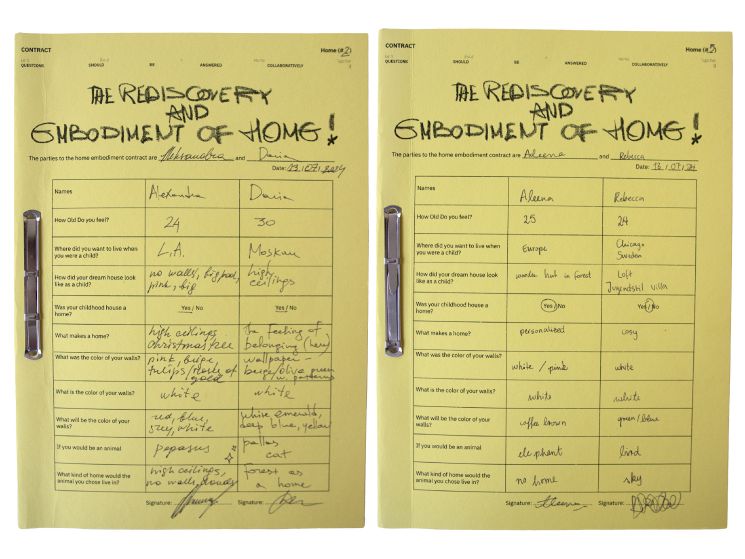 CONTRACT
Home (#2)
QUESTIONS SHOULD BE ANSWERED COLLABORATIVELY
THE REDISCOVERY
AND
EMBODIMENT OF HOME!
The parties to the home embodiment contract are Aleksandra and Daria
Date: 13/07/2024
Names Alexandra Daria
How Old Do you feel? 24 30
Where did you want to live when you were a child? L.A. Moskau
How did your dream house look like as a child? no walls, big pool, pink, big high ceilings
Was your childhood house a home? Yes / No Yes / No
What makes a home? high ceilings christmas tree the feeling of belonging (here)
What was the color of your walls? pink, beige, tulips/ gold wallpaper – beige/olive green w. patterns
What is the color of your walls? white white
What will be the color of your walls? red, blue, grey, white white emerald, deep blue, yellow
If you would be an animal pegasus pallas cat
What kind of home would the animal you chose live in? high ceilings, no walls, clouds forest as a home
Signature: Signature:
CONTRACT
Home (#5)
QUESTIONS SHOULD BE ANSWERED COLLABORATIVELY
THE REDISCOVERY
AND
EMBODIMENT OF HOME!
The parties to the home embodiment contract are Aleena and Rebecca
Date: 13/07/24
Names Aleena Rebecca
How Old Do you feel? 25 24
Where did you want to live when you were a child? Europe Chicago Sweden
How did your dream house look like as a child? wooden hut in forest Loft Jugendstil villa
Was your childhood house a home? Yes / No Yes / No
What makes a home? personalized cosy
What was the color of your walls? white / pink white
What is the color of your walls? white white
What will be the color of your walls? coffee brown green/blue
If you would be an animal elephant bird
What kind of home would the animal you chose live in? no home sky
Signature: Aleena Signature: